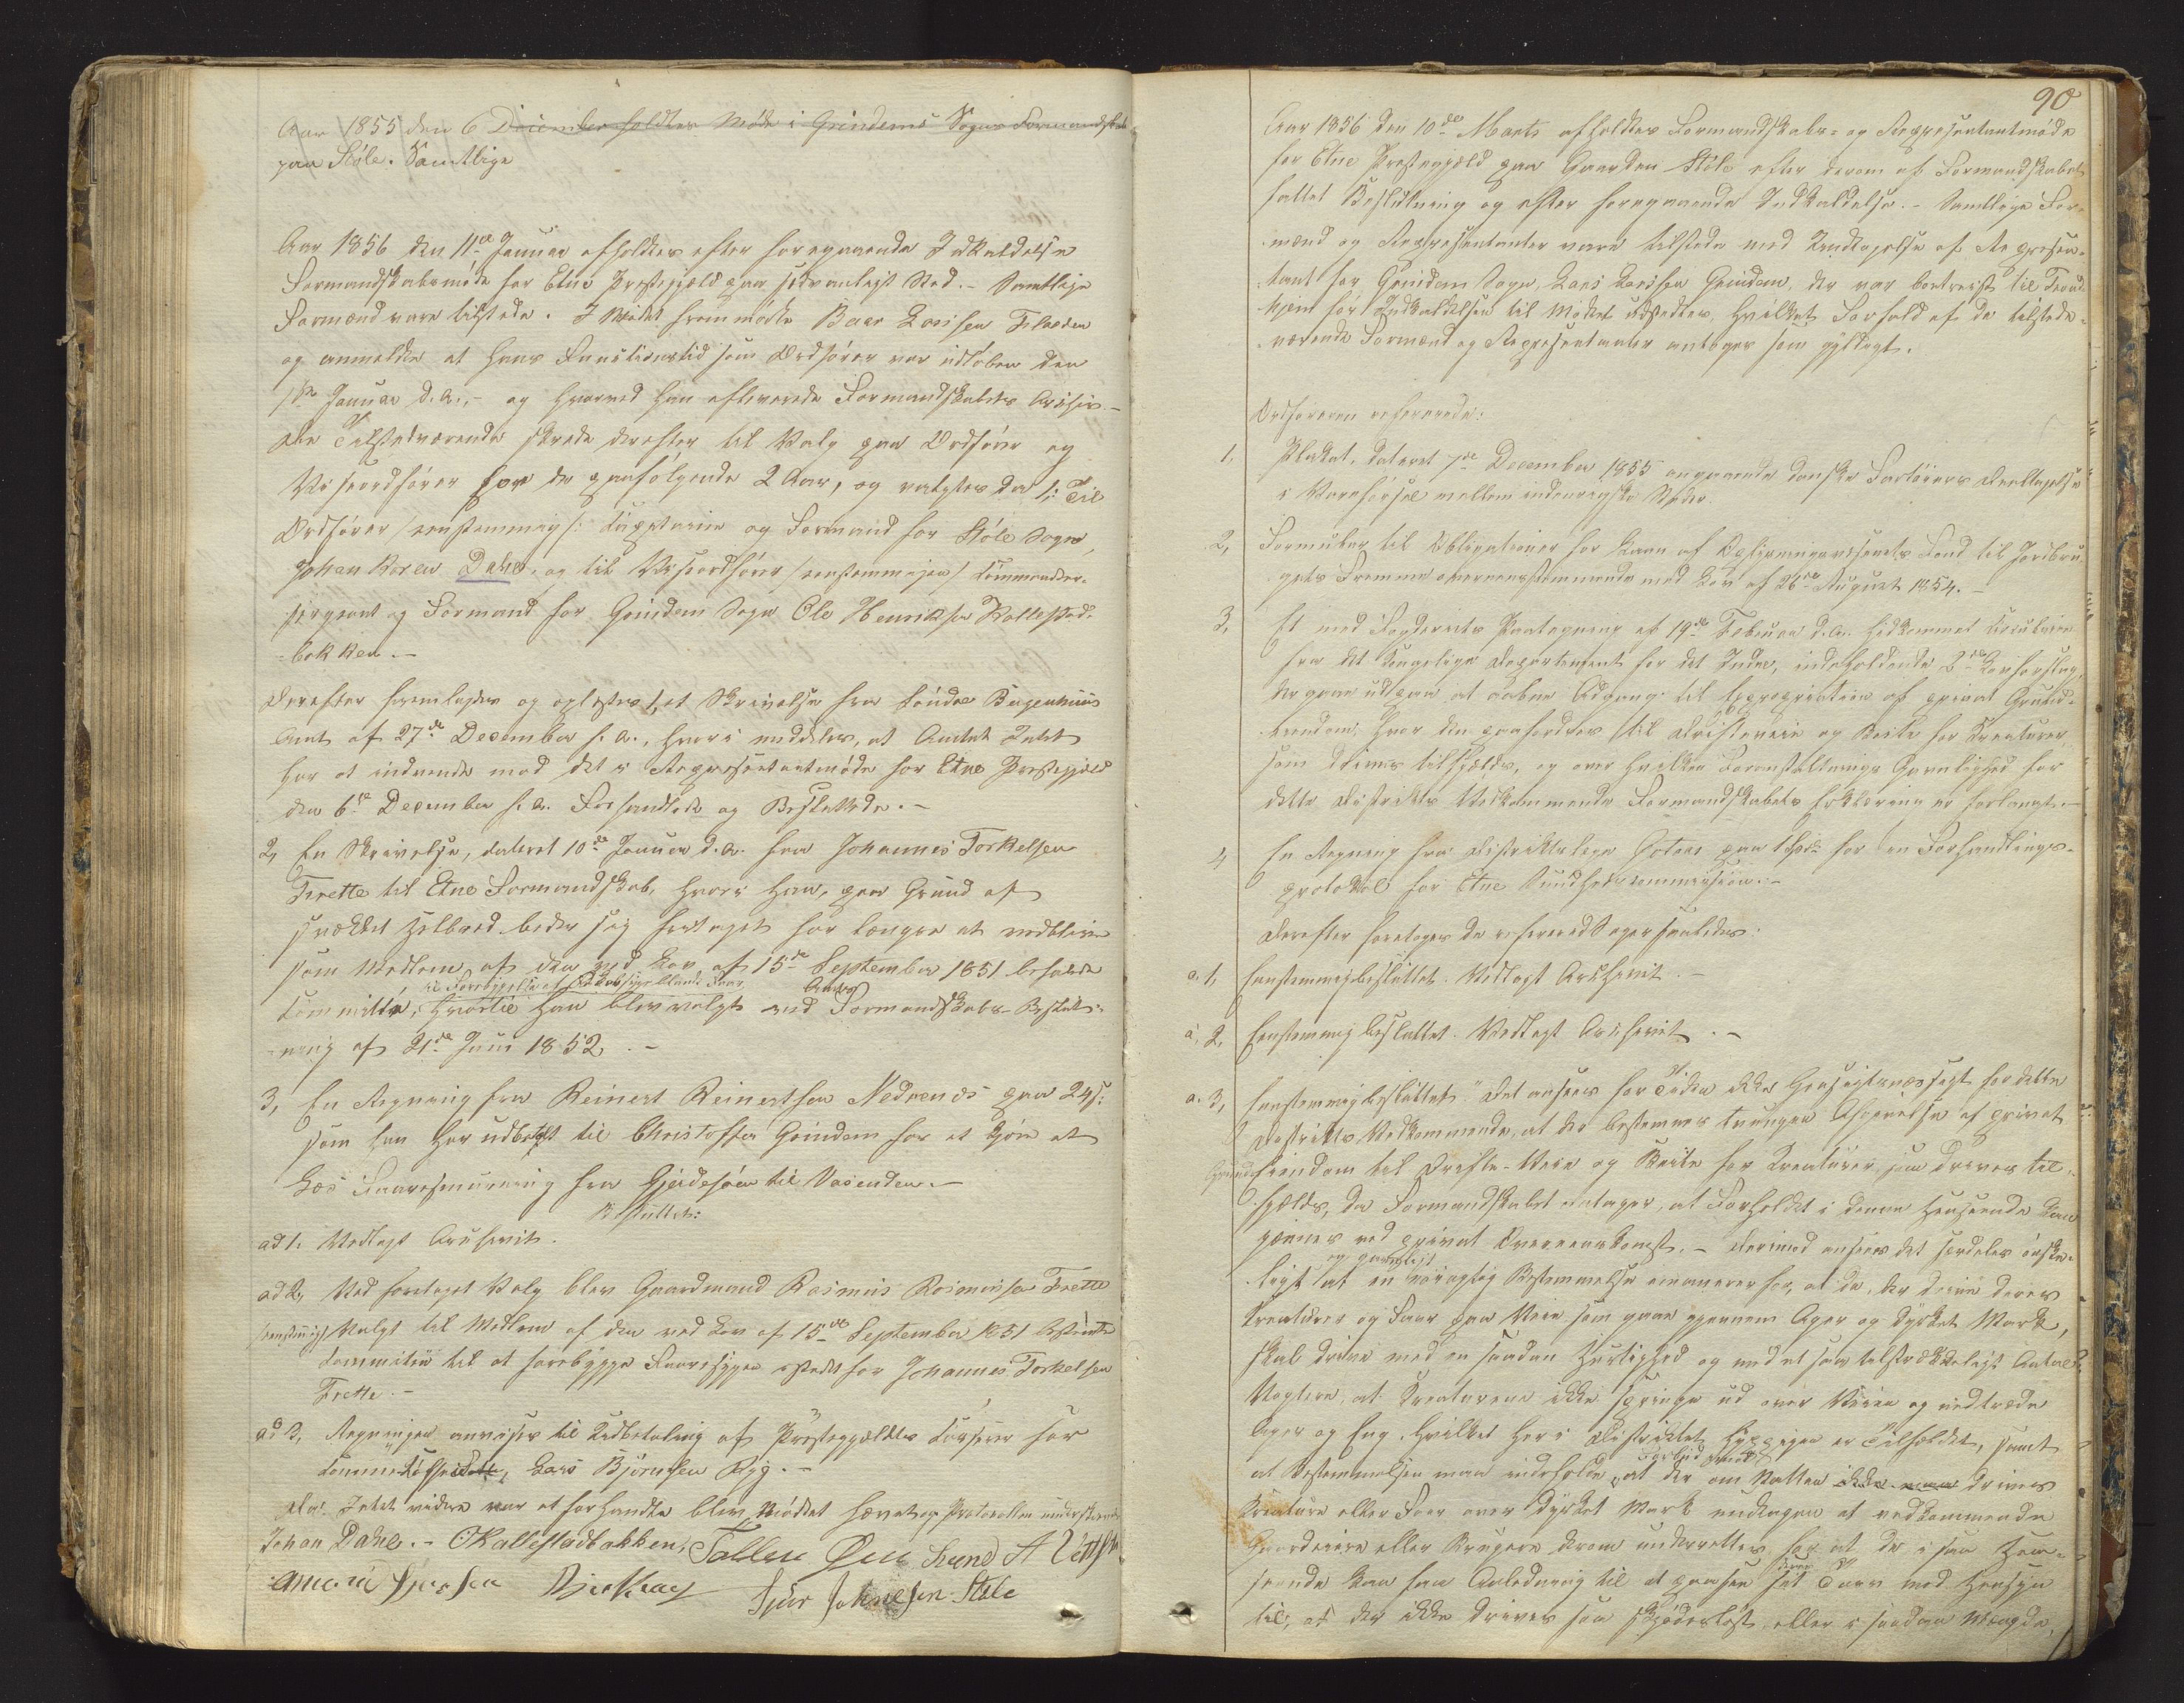 Aar 1855 den 6 December holdtes Møde i Grindems Sogns Formandskab
paa Støle. Samtlige
Aar 1856 den 11te Januar afholdtes efter foregaaende Indkaldelse
Formandskabsmøde for Etne Præstegjæld paa sædvanligt Sted. - Samtlige
Formænd vare tilstede. I Mødet fremmødte Baar Larsen Flaaden
og anmeldte at hans Functionstid som Ordfører var udløben den
1ste Januar d. A., - og hvorved han afleverede Formandskabets Archiv. -
De Tilstedeværende skred derefter til Valg paa Ordfører og
Viceordfører for de paafølgende 2 Aar, og valgtes da 1: Til
Ordfører /eenstemmig/: Kapptain og Formand for Støle Sogn,
Johan Koren Dahl, og til Viceordfører /eenstemmigen/ Kommandeer-
sergeant og Formand for Grindem Sogn Ole Henriksen Kallestad-
bakken. -
Derefter fremlagdes og oplæstes 1, et Skrivelse fra Søndre Bergenhuus
Amt af 27de December f. A., hvori meddeles, at Amtet Intet
har at indvende mod det i Repræsentantmøde for Etne Præstegjæld
den 6te December f. A. Forhandlede og Besluttede. -
2, En Skrivelse, dateret 10de Januar d. A. fra Johannes Torkelsen
Frette til Etne Formandskab, hvori han, paa Grund af
svækket Helbred beder sig fritaget for længere at vedblive
som Medlem af den ved Lov af 15de September 1851 befalede
til Forebyggelse af
Committé, hvortil han blev valgt ved Formandskabs-Beslut-
ning af 21de Juni 1852. -
3, En Regning fra Reinert Reinertsen Nedrenæs paa 24 s:
som han har udbetalt til Christoffer Grindem for at kjøre et
Læs Faaresmurning fra Gjerdesøen til Vaaenden. -
Besluttet:
ad 1. Vedlagt Archivet.
ad 2, Ved foretaget Valg blev Gaardmand Rasmus Rasmussen Frette
/eenstemmig/ Valgt til Medlem af den ved Lov af 15de September 1851 bestemte
Committee til at forebygge Faaresygen istedet for Johannes Torkelsen
Frette. -
ad 3, Regningen anvises til Udbetaling af Præstegjældets Kasserer for
Lars Bjørnsen Ryg. -
Da Intet videre var at forhandle blev Mødet hævet og Protocollen underskrevet
Johan Dahl. - OKallestadbakken, Tollev Lund A
Sjur Johnesen Støle
90
Aar 1856 den 10de Marts afholdtes Formandskabs- og Repræsentantmøde
for Etne Præstegjæld paa Gaarden Støle efter derom af Formandskabet
fattet Beslutning og efter foregaaende Indkaldelse. - Samtlige For-
mænd og Repræsentanter vare tilstede med Undtagelse af Repræsen-
tant for Grindem Sogn, Lars Larsen Grindem, der var bortreist til Trond-
hjem før Indkaldelsen til Mødet udstedtes, hvilket Forfald af de tilstede-
værende Formænd og Repræsentanter antoges som gyldigt.
Ordføreren refererede:
1, Plakat, dateret 7de December 1855 angaaende danske Fartøiers Deeltagelse
i Vareførsel mellem indenrigske Steder.
2, Formular til Obligationer for Laan af Oplysningsvæsenets Fond til Jordbru-
gets Fremme overeensstemmende med Lov af 26de August 1854. -
3, Et med Fogderiets Paategning af 19de Februar d. A. hidkommet Circulaire
fra det Kongelige Departement for det Indre, indeholdende 2de Lovforslag,
der gaae ud paa at aabne Adgang til Expropriation af privat Grund-
eiendom, hvor den paafordres til Drifteveie og Beite for Kreaturer
som drives tilfjelds, og over hvilken Foranstaltnings Gavnlighed for
dette Distrikts Vedkommende Formandskabets Erklæring er forlangt. -
4, En Regning fra Distriktslæge Gotaas paa 1 Spd. for en Forhandlings-
protokol for Etne Sundhedscommission. -
Derefter foretoges de refererede Sager saaledes:
a. 1, Eenstemmig besluttet. Vedlagt Archivet. -
a. 2, Eenstemmig besluttet. Vedlagt Archivet. -
a. 3, Eenstemmig besluttet: "Det ansees for Tiden ikke hensigtsmæssigt for dette
Distrikts Vedkommende, at der bestemmes tvungen Afgivelse af privat
Grundeiendom til Drifte-Veie og Beite for Kreaturer som drives til-
fjelds, da Formandskabet antager, at Forholdet i denne Henseende kan
jævnes ved privat Overeenskomst. - Derimod ansees det særdeles ønske-
og gavnligt
ligt at en nøiagtig Bestemmelse emanerer for, at de, der drive deres
Kreaturer og Faar paa Veie som gaae gjennem Ager og dyrket Mark,
skal drive med en saadan Hurtighed og med et saa tilstrækkeligt Antal
Vogtere, at Kreaturene ikke springe ud over Veien og nedtræde
Ager og Eng, hvilket her i Distriktet hyppigen er Tilfældet, samt
Forbud imod
at Bestemmelsen maa indeholde, at der om Natten ikke maa drives
Kreature eller Faar over dyrket Mark medmindre at vedkommende
Gaardeiere eller Brugere derom underrettes, for at de i saa Hen-
seende kan faae Anledning til at paasee sit Tarv med Hensyn
til, at der ikke drives saa skjødesløst, eller i saadan Mængde,